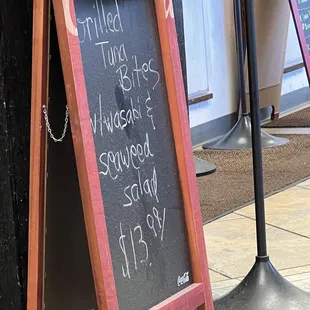 Grilled
Tuna
Bites
w/wasabi &
seaweed
salad
$13.94
Coca-Cola